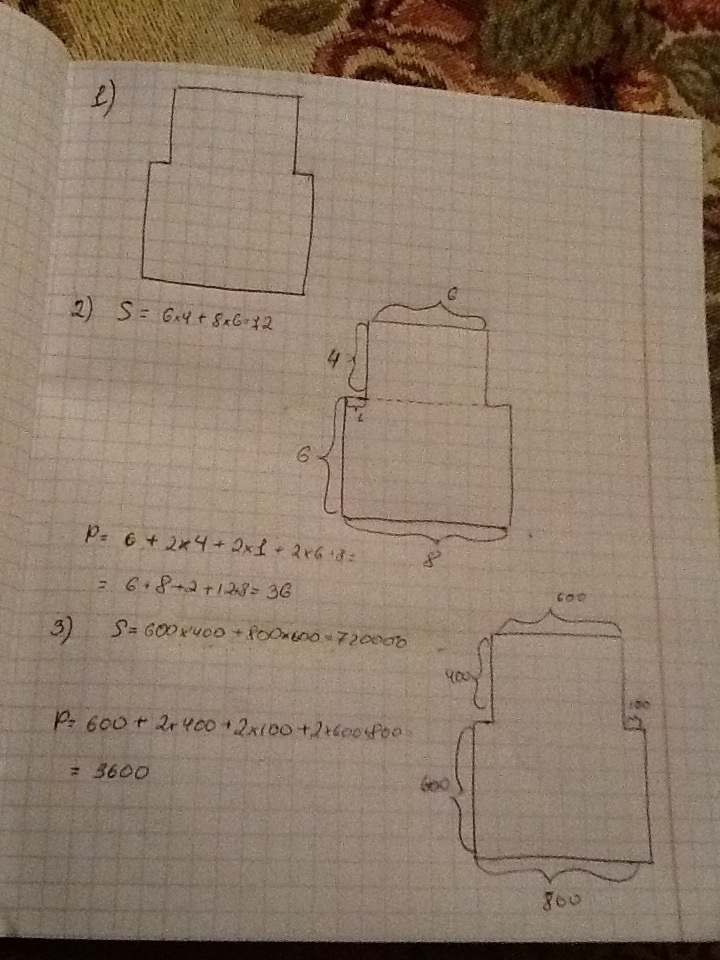 1)
2) S = 6×4 + 8×6 = 72
6
4
1
6
8
P = 6 + 2×4 + 2×1 + 2×6+8=
= 6+8+2+12+8= 36
3) S = 600×400 + 800×600 = 720000
600
400
100
600
800
P = 600 + 2×400 + 2×100 + 2×600+800=
= 3600